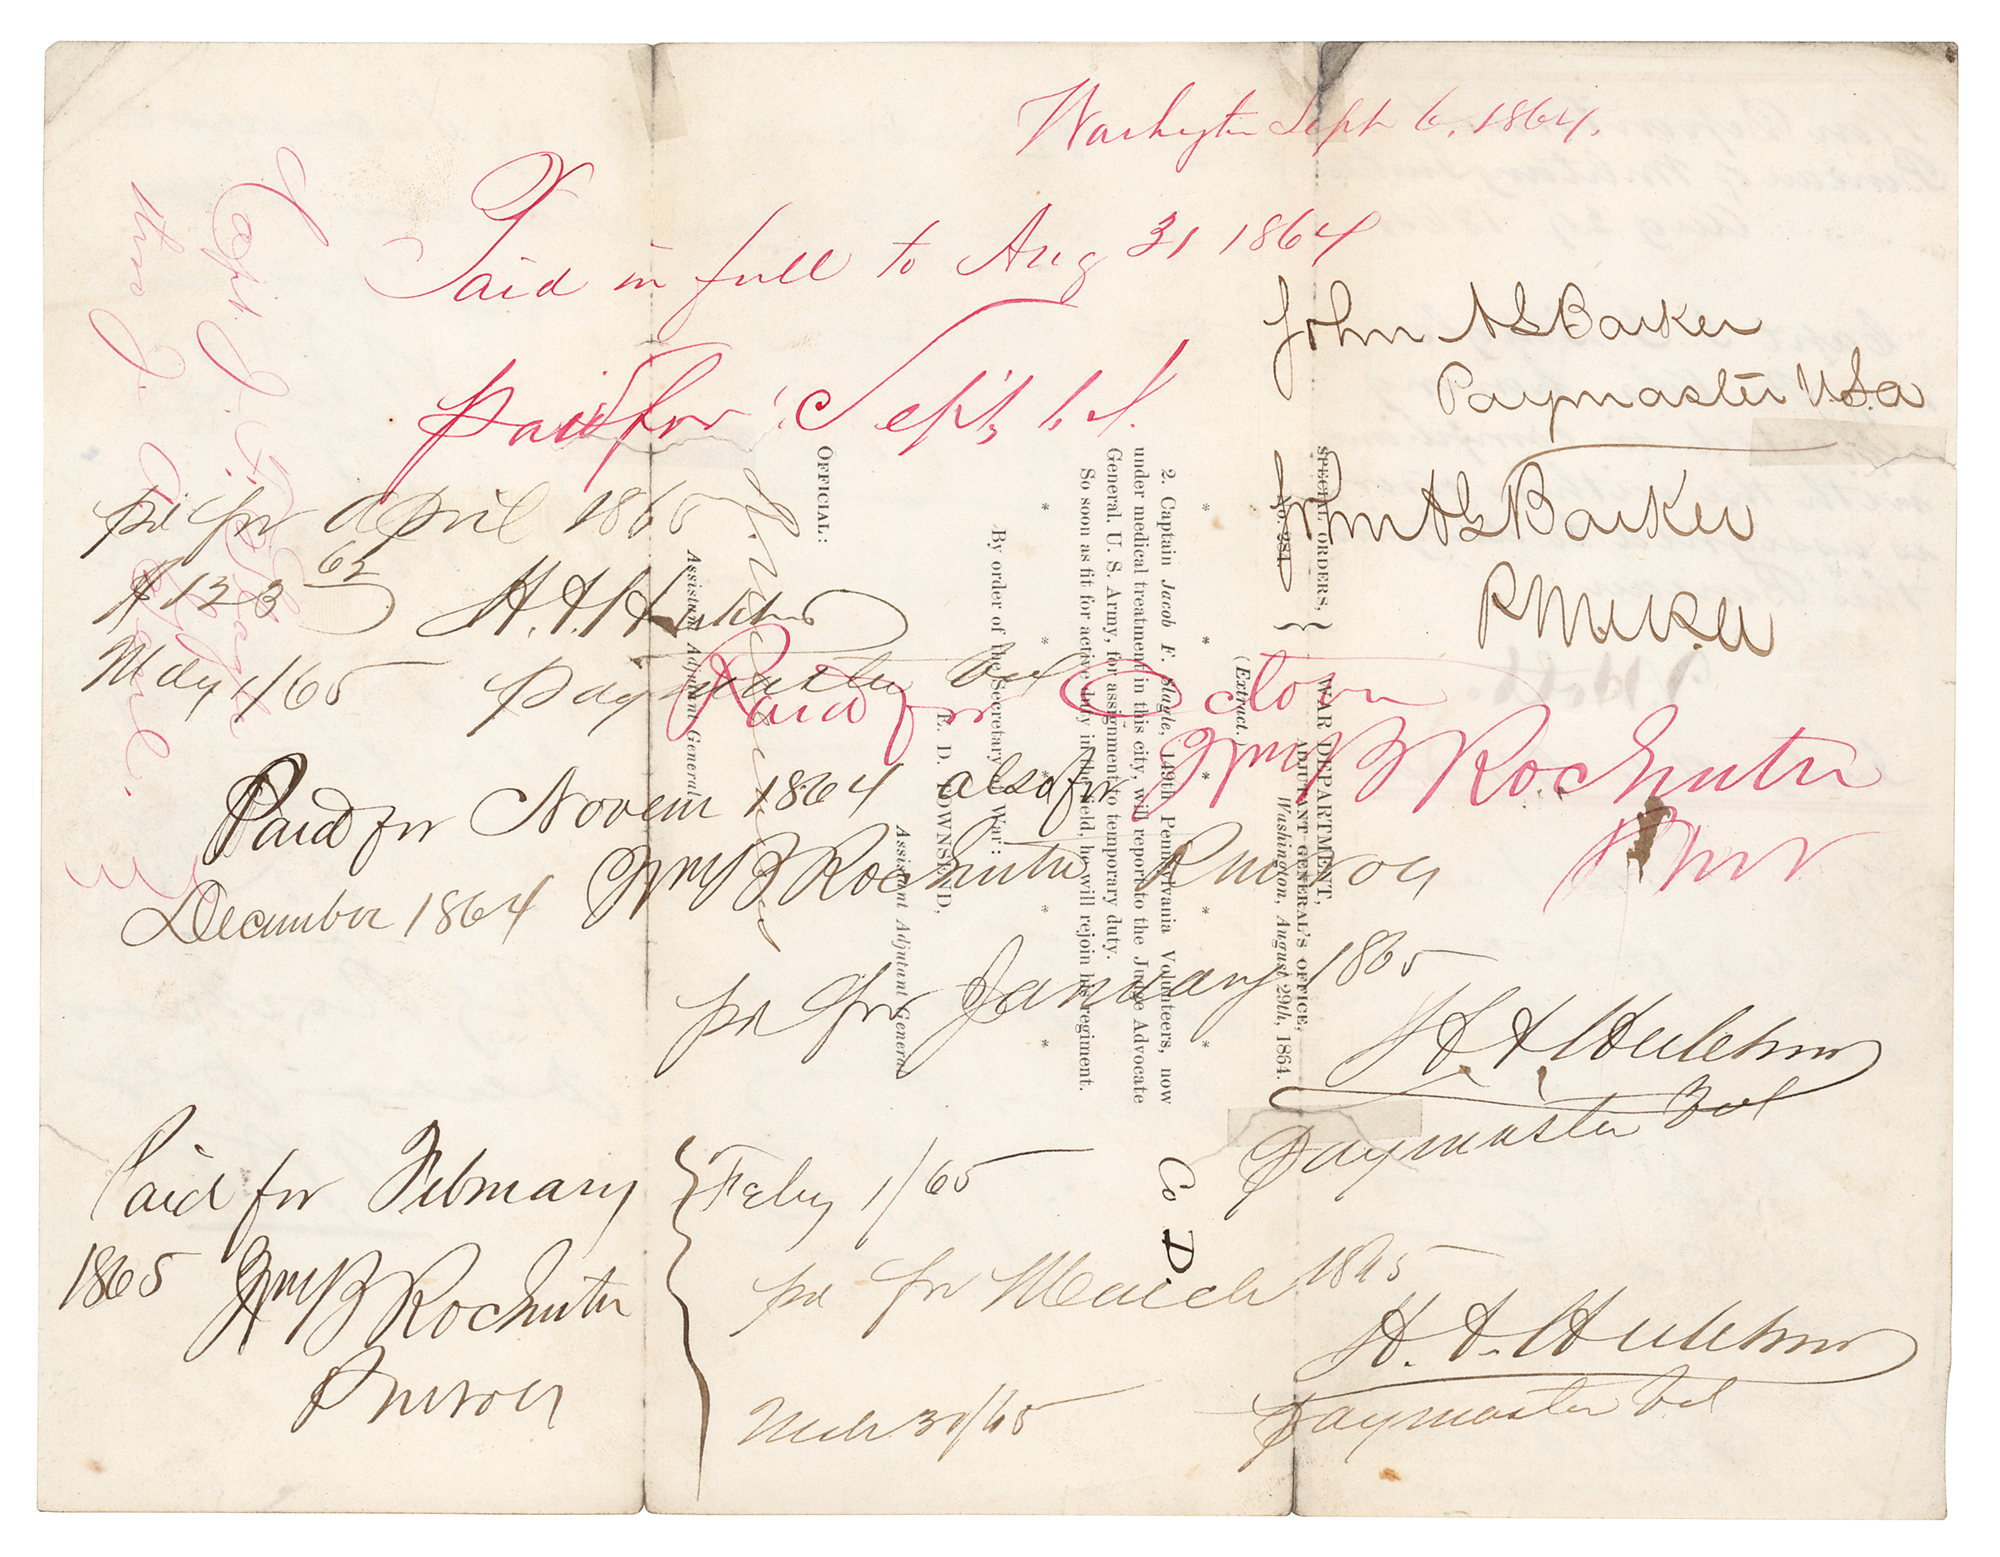 Washington Sept 6, 1864.
Paid in full to Aug 31 1864
John A S Barker
Paymaster U.S.a
paid for Sept,
John A S Barker
PMUSA
pd for April 1865
$123 62
H. A. Hutchins
May 1/65
Paymaster Vol
Paid for Octover
Wm B Rochester
PMV
Paid for Novem 1864 also for
December 1864 Wm B Rochester PM Vol
pd for January 1865
H. A. Hutchins
Paymaster Vol
Paid for February
1865 Wm B Rochester
PM Vol
Feby 1/65
pd for March 1865
H. A. Hutchins
Mch 31/65
Paymaster Vol
Co D.
Capt. J. F. Slagle
SPECIAL ORDERS,
No. 284.
WAR DEPARTMENT,
ADJUTANT GENERAL'S OFFICE,
Washington, August 29th, 1864.
(Extract.)
* * * * * *
2. Captain Jacob F. Slagle, 149th Pennsylvania Volunteers, now
under medical treatment in this city, will report to the Judge Advocate
General, U. S. Army, for assignment to temporary duty.
So soon as fit for active duty in the field, he will rejoin his regiment.
* * * * *
By order of the Secretary of War:
E. D. TOWNSEND,
Assistant Adjutant General
OFFICIAL:
Assistant Adjutant General.